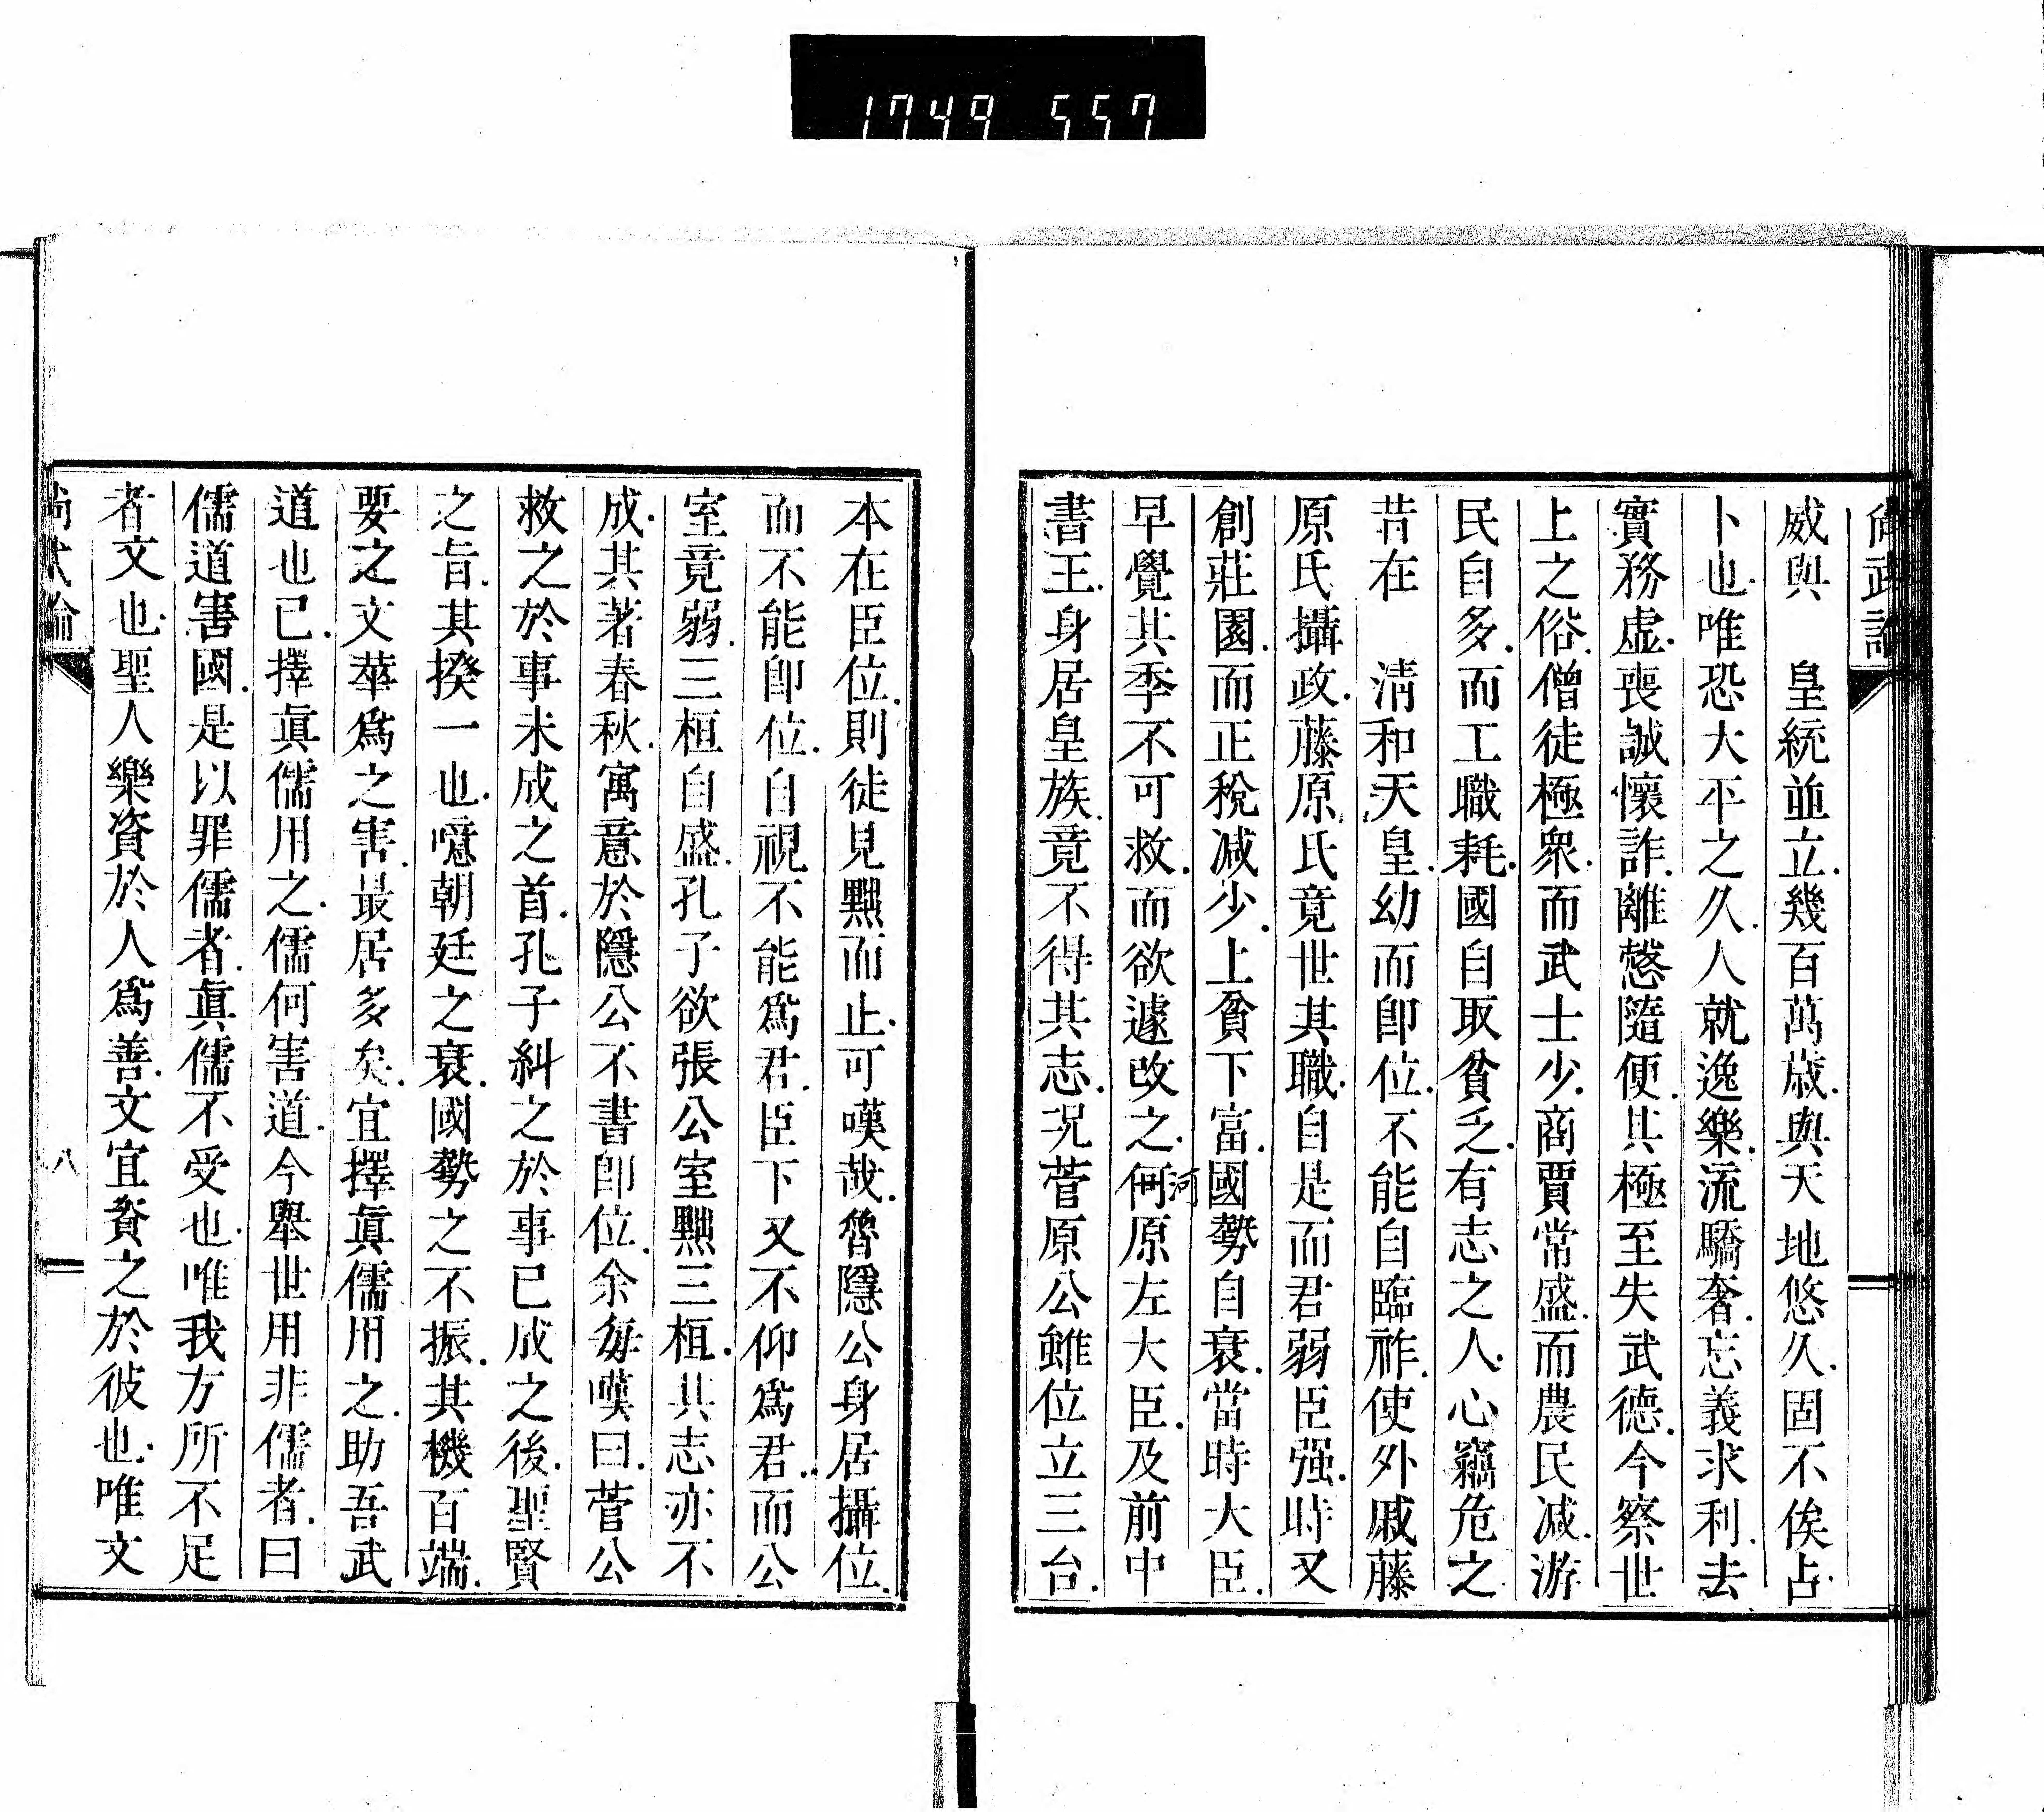 1749 557
尚武論
威與　皇統並立.幾百萬歲.與天地悠久.固不俟占.
卜也.唯恐大平之久.人就逸樂.流驕奢.忘義求利.去
實務虛.喪誠懷詐.離愨隨便.其極至失武德.今察世
上之俗.僧徒極衆.而武士少.商賈常盛.而農民減.游
民自多.而工職耗.國自取貧乏.有志之人.心竊危之
昔在　淸和天皇.幼而卽位.不能自臨祚.使外戚藤
原氏攝政.藤原氏竟世其職.自是而君弱臣强.時又
創莊園.而正稅減少.上貧下富.國勢自衰.當時大臣.
早覺其季不可救.而欲遽改之.何原左大臣.及前中
河
書王.身居皇族.竟不得其志.況菅原公雖位立三台.
本在臣位.則徒見黜而止.可嘆哉.魯隱公身居攝位.
而不能卽位.自視不能爲君.臣下又不仰爲君.而公
室竟弱.三桓自盛.孔子欲張公室黜三桓.其志亦不
成.其著春秋.寓意於隱公不書卽位.余每嘆曰.菅公
救之於事未成之首.孔子糾之於事已成之後.聖賢
之旨.其揆一也.噫朝廷之衰.國勢之不振.其機百端.
要之文華爲之害.最居多矣.宜擇眞儒用之.助吾武
道也已.擇眞儒用之.儒何害道.今舉世用非儒者.曰
儒道害國.是以罪儒者.眞儒不受也.唯我方所不足
者文也.聖人樂資於人爲善.文宜資之於彼也.唯文
尚武論
八